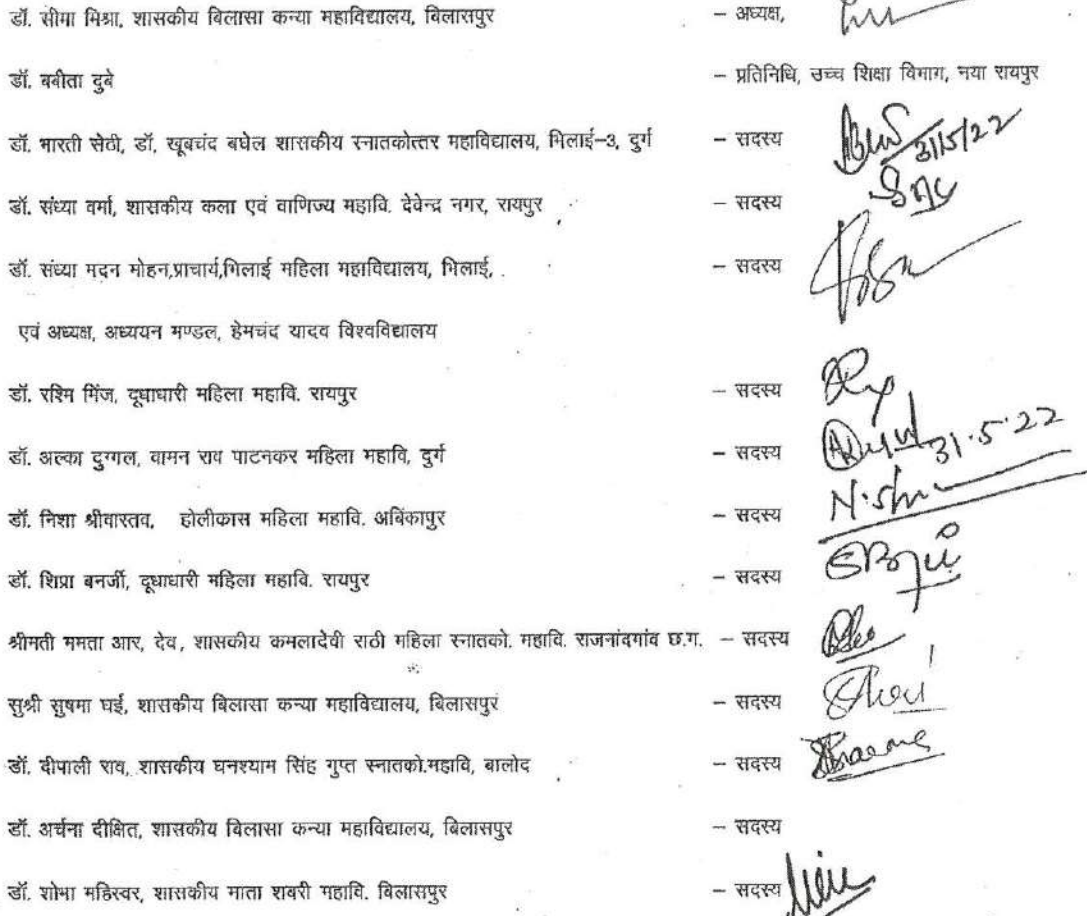 डॉ. सीमा मिश्रा, शासकीय बिलासा कन्या महाविद्यालय, बिलासपुर – अध्यक्ष,
डॉ. बबीता दुबे – प्रतिनिधि, उच्च शिक्षा विभाग, नया रायपुर
डॉ. भारती सेठी, डॉ. खूबचंद बघेल शासकीय स्नातकोत्तर महाविद्यालय, भिलाई–3, दुर्ग – सदस्य 31/5/22
डॉ. संध्या वर्मा, शासकीय कला एवं वाणिज्य महावि. देवेन्द्र नगर, रायपुर – सदस्य
डॉ. संध्या मदन मोहन,प्राचार्य,भिलाई महिला महाविद्यालय, भिलाई, – सदस्य
एवं अध्यक्ष, अध्ययन मण्डल, हेमचंद यादव विश्वविद्यालय
डॉ. रश्मि मिंज, दूधाधारी महिला महावि. रायपुर – सदस्य
डॉ. अल्का दुग्गल, वामन राव पाटनकर महिला महावि, दुर्ग – सदस्य 31.5.22
डॉ. निशा श्रीवास्तव, होलीकास महिला महावि. अबिंकापुर – सदस्य
डॉ. शिप्रा बनर्जी, दूधाधारी महिला महावि. रायपुर – सदस्य
श्रीमती ममता आर, देव, शासकीय कमलादेवी राठी महिला स्नातको. महावि. राजनांदगांव छ.ग. – सदस्य
सुश्री सुषमा घई, शासकीय बिलासा कन्या महाविद्यालय, बिलासपुर – सदस्य
डॉ. दीपाली राव, शासकीय घनश्याम सिंह गुप्त स्नातको.महावि, बालोद – सदस्य
डॉ. अर्चना दीक्षित, शासकीय बिलासा कन्या महाविद्यालय, बिलासपुर – सदस्य
डॉ. शोभा महिस्वर, शासकीय माता शबरी महावि. बिलासपुर – सदस्य